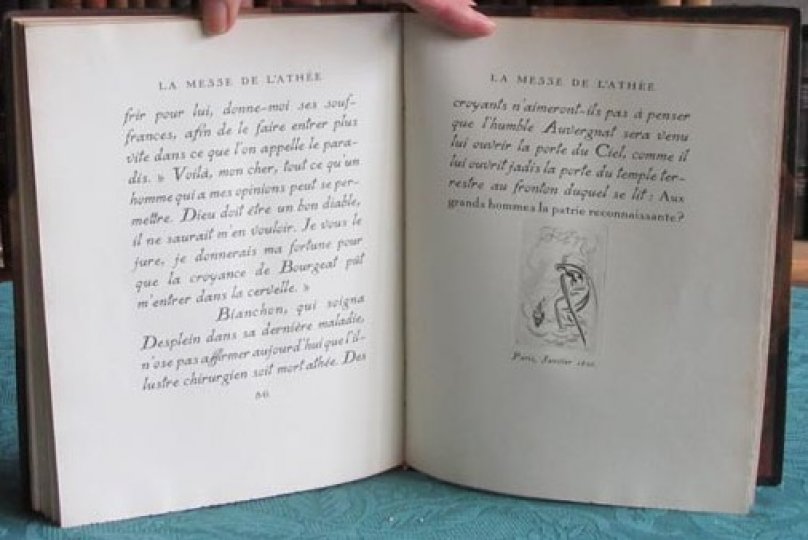 LA MESSE DE L'ATHÉE
frir pour lui, donne-moi ses souf-
frances, afin de le faire entrer plus
vite dans ce que l'on appelle le para-
dis. » Voilà, mon cher, tout ce qu'un
homme qui a mes opinions peut se per-
mettre. Dieu doit être un bon diable,
il ne saurait m'en vouloir. Je vous le
jure, je donnerais ma fortune pour
que la croyance de Bourgeat pût
m'entrer dans la cervelle. »
Bianchon, qui soigna
Desplein dans sa dernière maladie,
n'ose pas affirmer aujourd'hui que l'il-
lustre chirurgien soit mort athée. Des
LA MESSE DE L'ATHÉE
croyants n'aimeront-ils pas à penser
que l'humble Auvergnat sera venu
lui ouvrir la porte du Ciel, comme il
lui ouvrit jadis la porte du temple ter-
restre au fronton duquel se lit : Aux
grands hommes la patrie reconnaissante?
Paris, Janvier